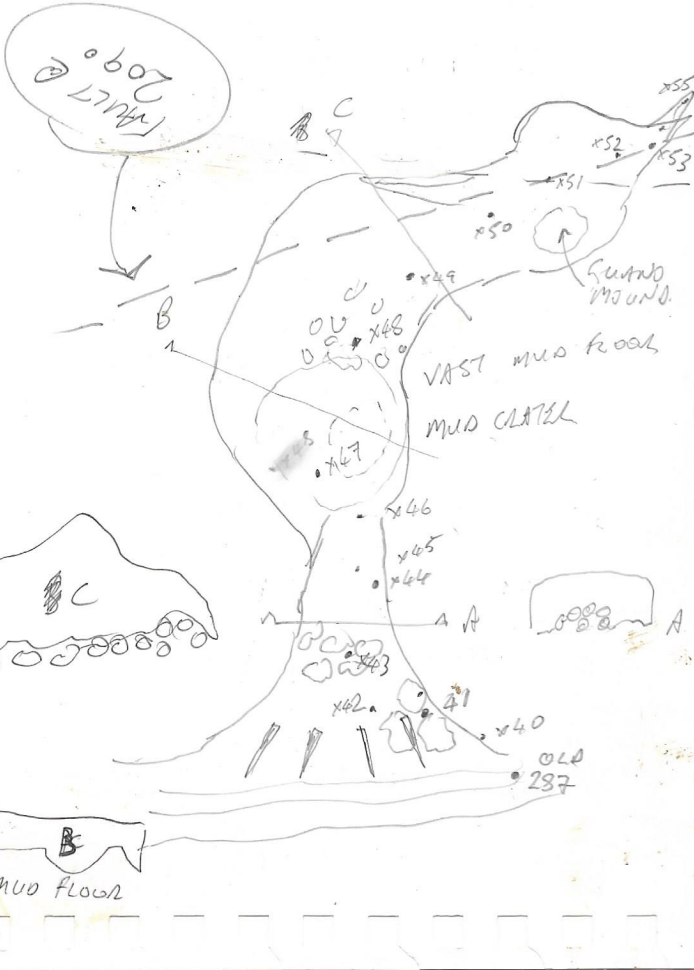 FAULT @
209°
C
x55
x52
x53
x51
x50
x49
GUANO
MOUND
B
x48
VAST MUD FLOOR
MUD CRATER
x47
x46
x45
x44
C
A
A
x43
x42
41
x40
OLD
287
B
MUD FLOOR